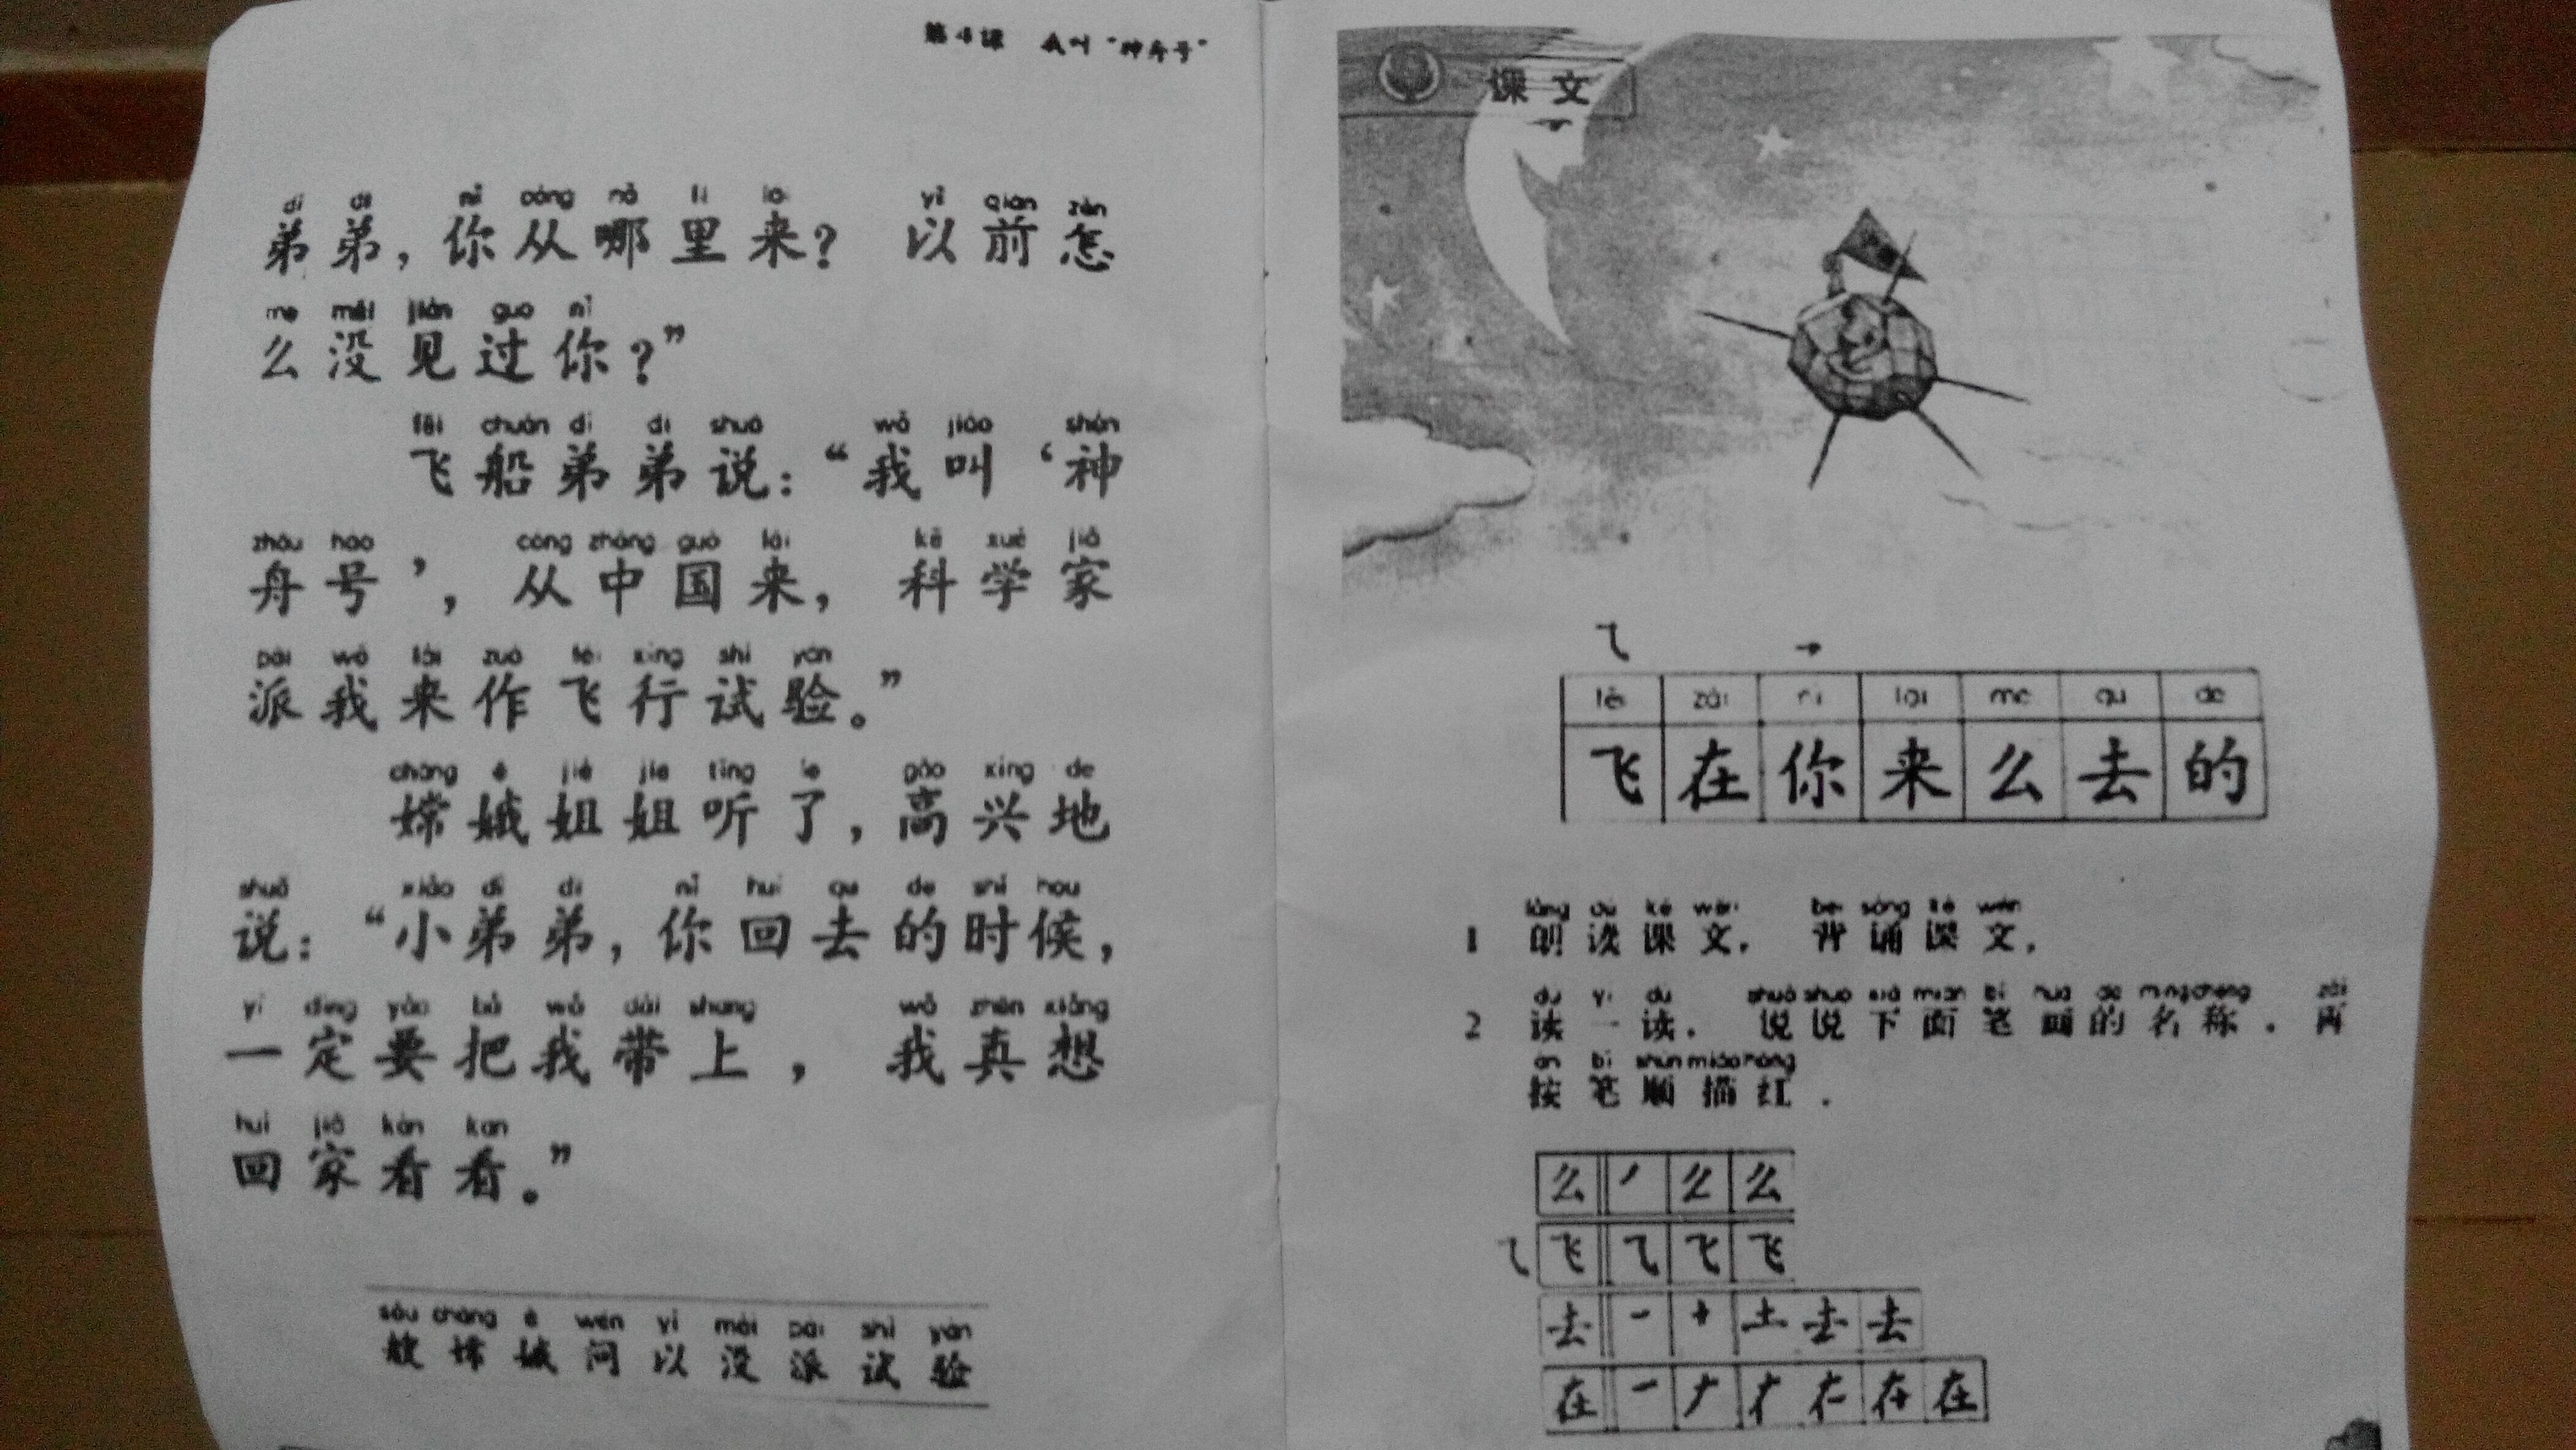 第4课 我叫“神舟号”
dì di nǐ cóng nǎ li lái yǐ qián zěn
弟弟，你从哪里来？以前怎
me méi jiàn guo nǐ
么没见过你？”
fēi chuán dì di shuō wǒ jiào shén
飞船弟弟说：“我叫‘神
zhōu hào cóng zhōng guó lái kē xué jiā
舟号’，从中国来，科学家
pài wǒ lái zuò fēi xíng shì yàn
派我来作飞行试验。”
cháng é jiě jie tīng le gāo xìng de
嫦娥姐姐听了，高兴地
shuō xiǎo dì di nǐ huí qù de shí hou
说：“小弟弟，你回去的时候，
yí dìng yào bǎ wǒ dài shang wǒ zhēn xiǎng
一定要把我带上，我真想
huí jiā kàn kan
回家看看。”
sōu cháng é wèn yǐ méi pài shì yàn
艘嫦娥问以没派试验
课文
㇈ ㇀
fēi zài nǐ lái me qù de
飞在你来么去的
lǎng dú kè wén bèi sòng kè wén
1 朗读课文，背诵课文。
dú yi dú shuō shuo xià miàn bǐ huà de míng chēng zài
2 读一读，说说下面笔画的名称，再
àn bǐ shùn miáo hóng
按笔顺描红。
么 丿 么 么
㇈ 飞 ㇈ 飞 飞
去 一 十 土 去 去
在 一 𠂇 在 在